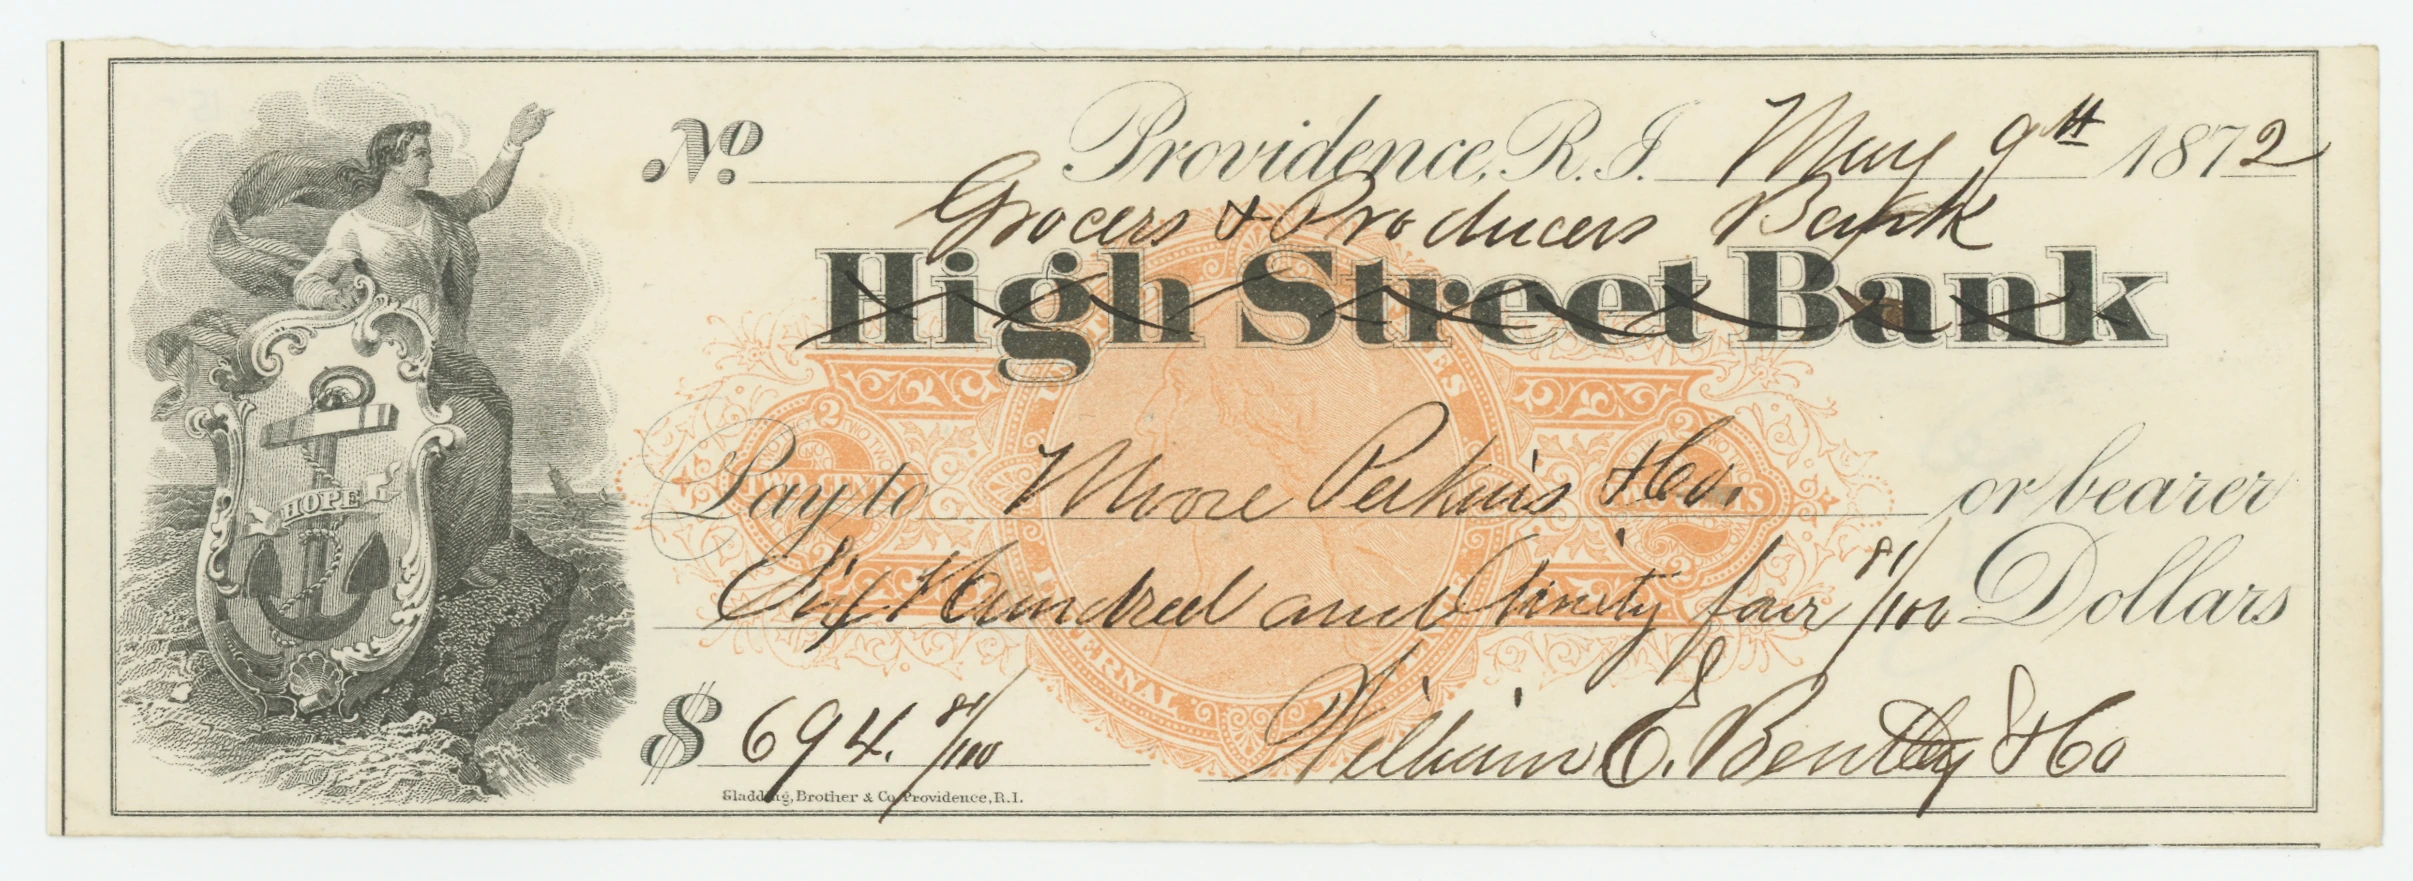 No. Providence, R. I. May 9th 1872
Grocers & Producers Bank
High Street Bank
Pay to Moore Perkins & Co. or bearer
Six Hundred and Ninety four 81/100 Dollars
$ 694. 81/100 William E. Bentley & Co
Gladding, Brother & Co. Providence, R.I.
HOPE
2 TWO
TWO CENTS
2
INTERNAL